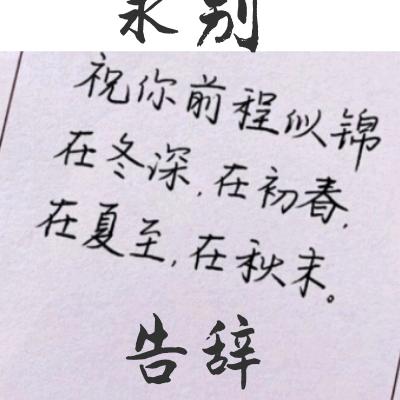 永别
祝你前程似锦
在冬深,在初春,
在夏至,在秋末。
告辞